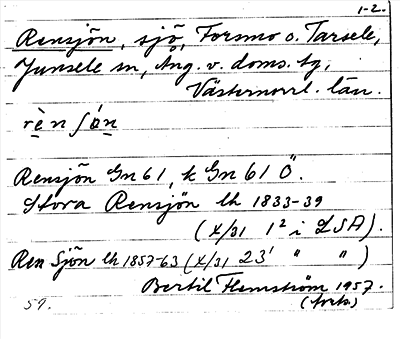 1-2.
Rensjön, sjö, Forsmo o. Tarsele,
Junsele sn, Ång. v. doms. tg,
Västernorrl. län.
rèn ʃón
Rensjön Gn 61, k Gn 61 Ö.
Stora Rensjön lh 1833-39
(x/31 1² i LSA).
Ren Sjön lh 1857-63 (x/31 23¹ " ")
Bertil Flemström 1957.
(forts)
57.